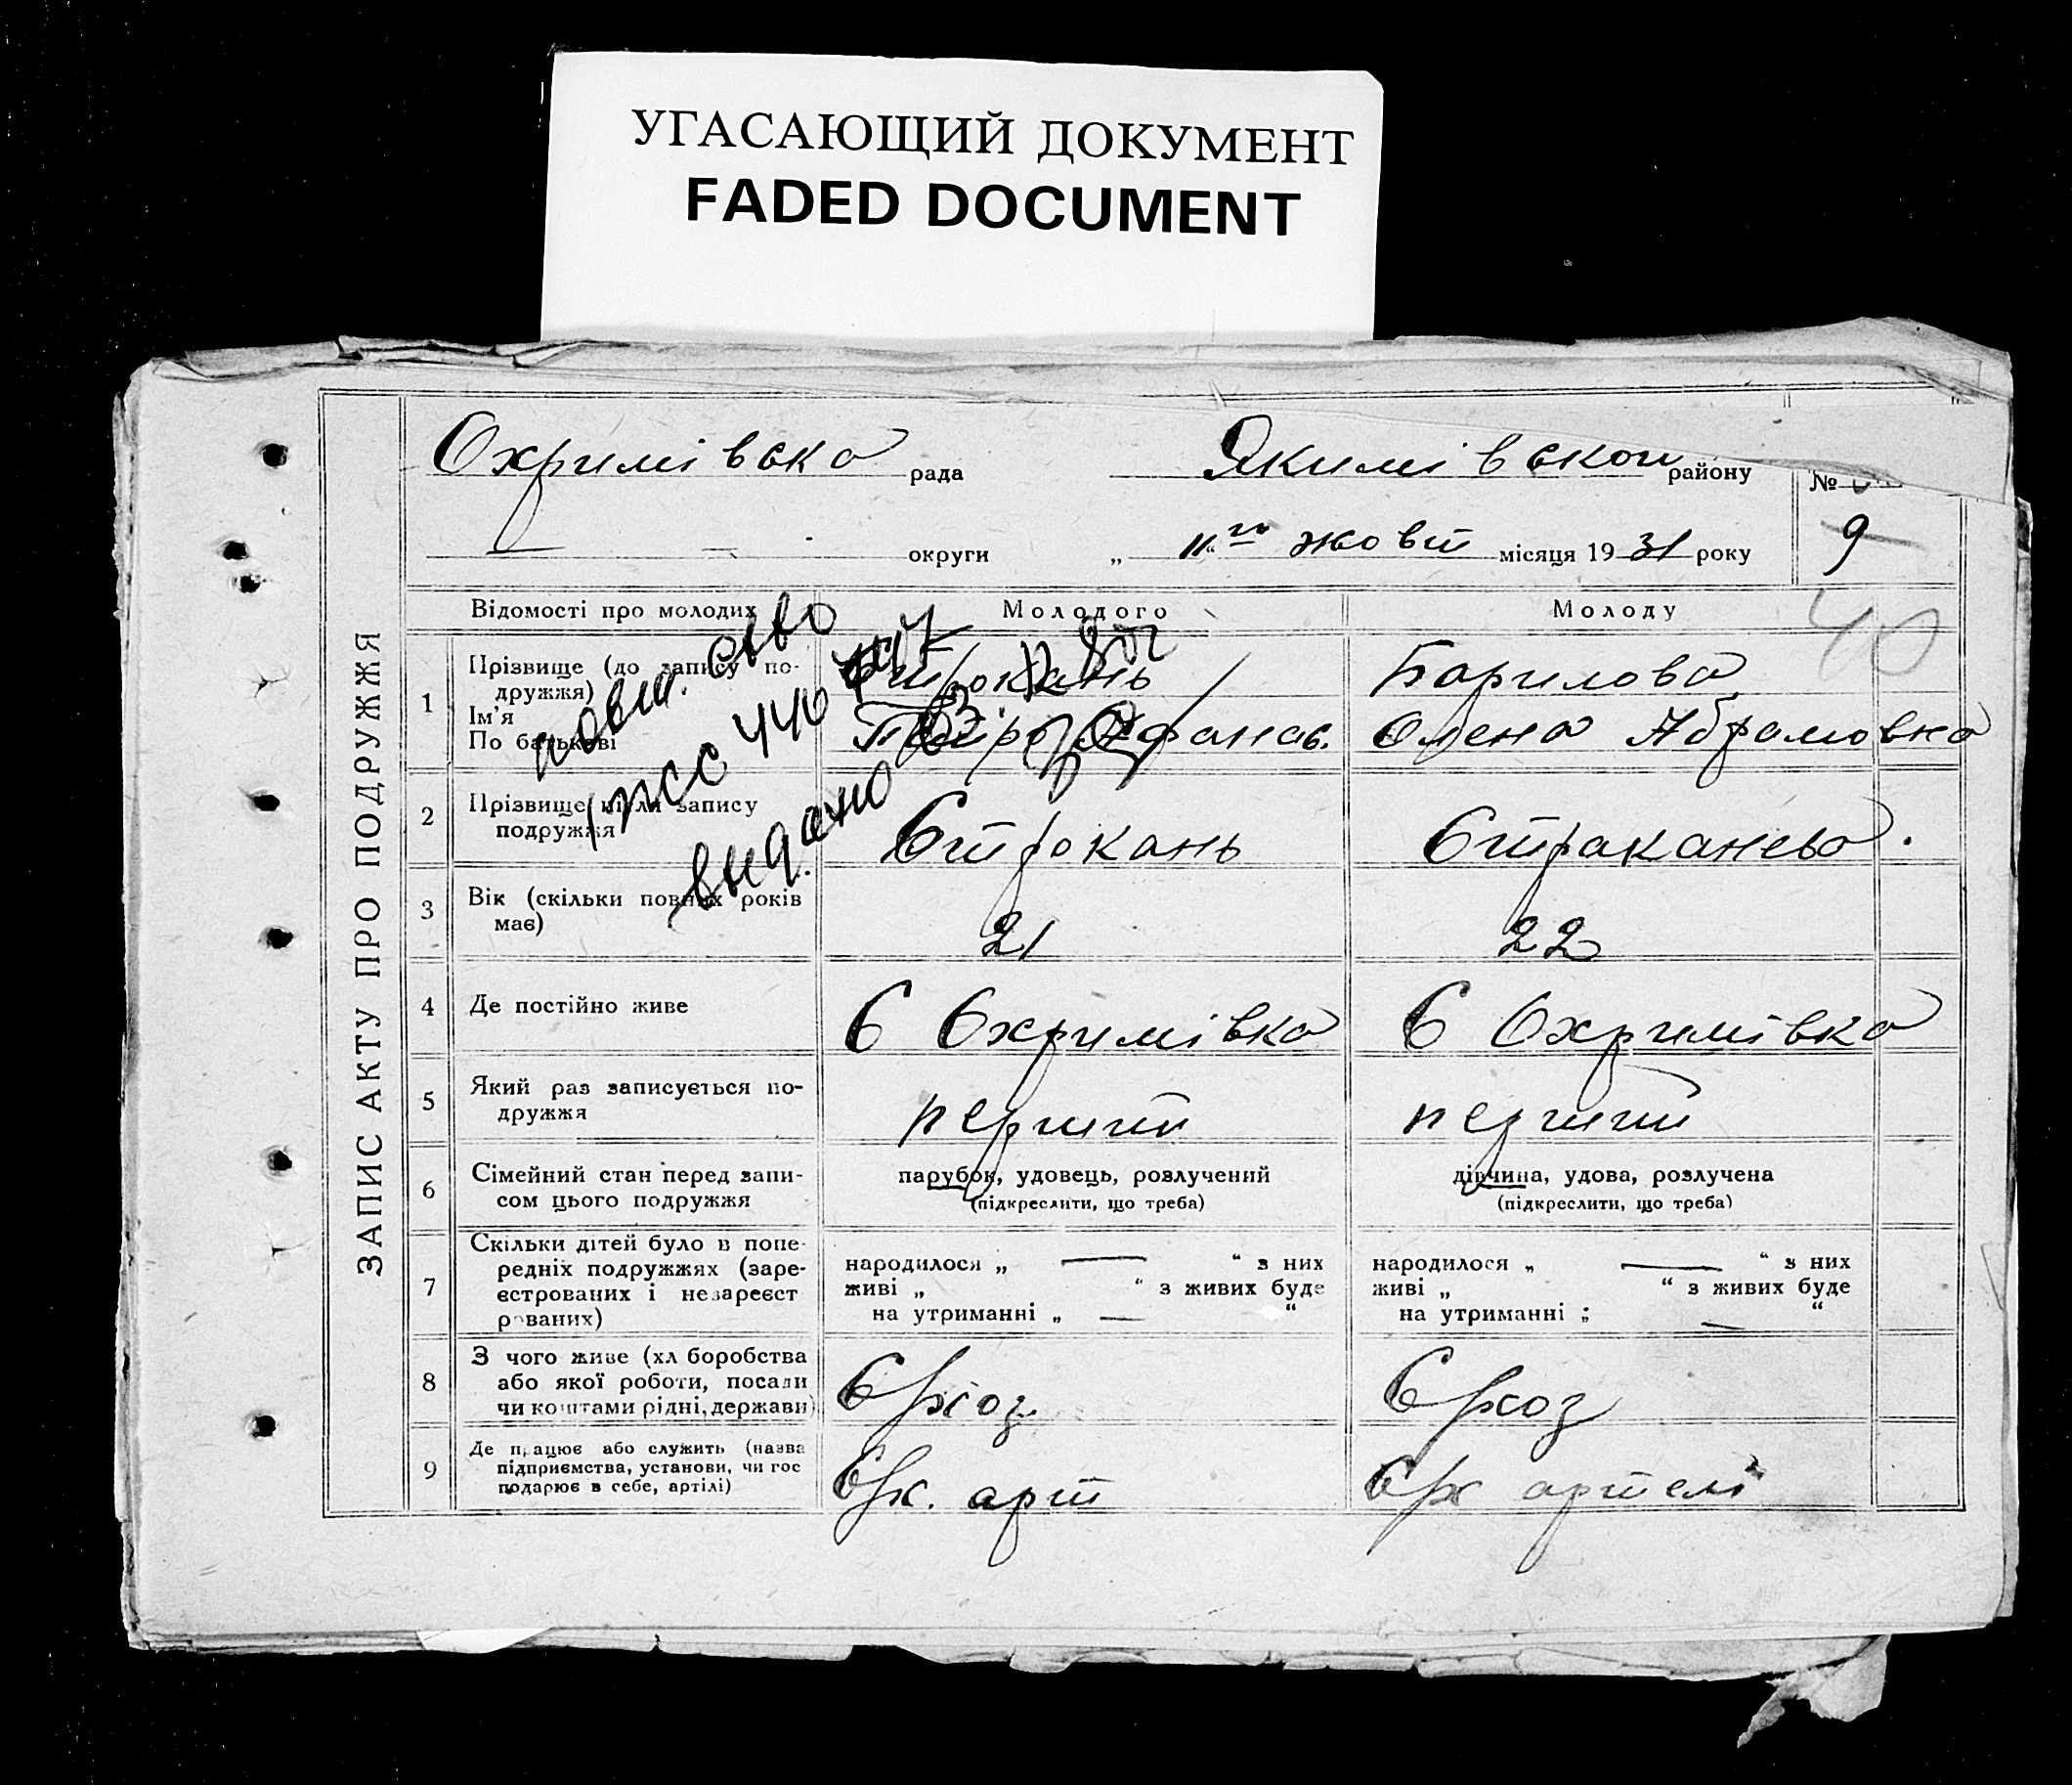 УГАСАЮЩИЙ ДОКУМЕНТ
FADED DOCUMENT
ЗАПИС АКТУ ПРО ПОДРУЖЖЯ
Охримівска рада Якимівского району №
— — округи „ 11го жовт місяця 1931 року 9
Відомості про молодих Молодого Молоду 40
1 Прізвище (до запису по-
дружжя) Строкань Барилова
Ім'я
По батькові Петро Афанас. Олена Абрамовна
повт. св-во
выдано
2 Прізвище після запису
подружжя Строкань Страканева.
3 Вік (скільки повних років
має) 21 22
4 Де постійно живе С Охримівка С Охримівка
5 Який раз записується по-
дружжя перший перший
6 Сімейний стан перед запи-
сом цього подружжя
парубок, удовець, розлучений
(підкреслити, що треба)
дівчина, удова, розлучена
(підкреслити, що треба)
7 Скільки дітей було в попе-
редніх подружжях (заре-
єстрованих і незареєст
рованих)
народилося „ — “ з них
живі „ “ з живих буде
на утриманні „ — “
народилося „ — “ з них
живі „ “ з живих буде
на утриманні : — “
8 З чого живе (хл боробства
або якої роботи, посади
чи коштами рідні, держави) Срхоз Срхоз
9 Де працює або служить (назва
підприємства, установи, чи гос
подарює в себе, артілі) Срх. арт Срх артелі